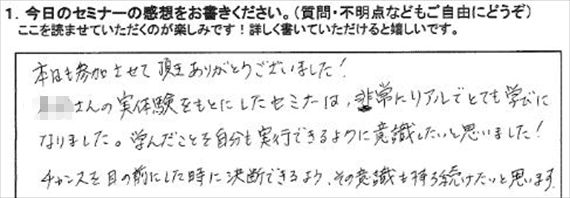 1. 今日のセミナーの感想をお書きください。(質問・不明点などもご自由にどうぞ)
ここを読ませていただくのが楽しみです！詳しく書いていただけると嬉しいです。
本日も参加させて頂きありがとうございました！
さんの実体験をもとにしたセミナーは、非常にリアルでとても学びに
なりました。学んだことを自分も実行できるように意識したいと思いました！
チャンスを目の前にした時に決断できるよう、その意識も持ち続けたいと思います。